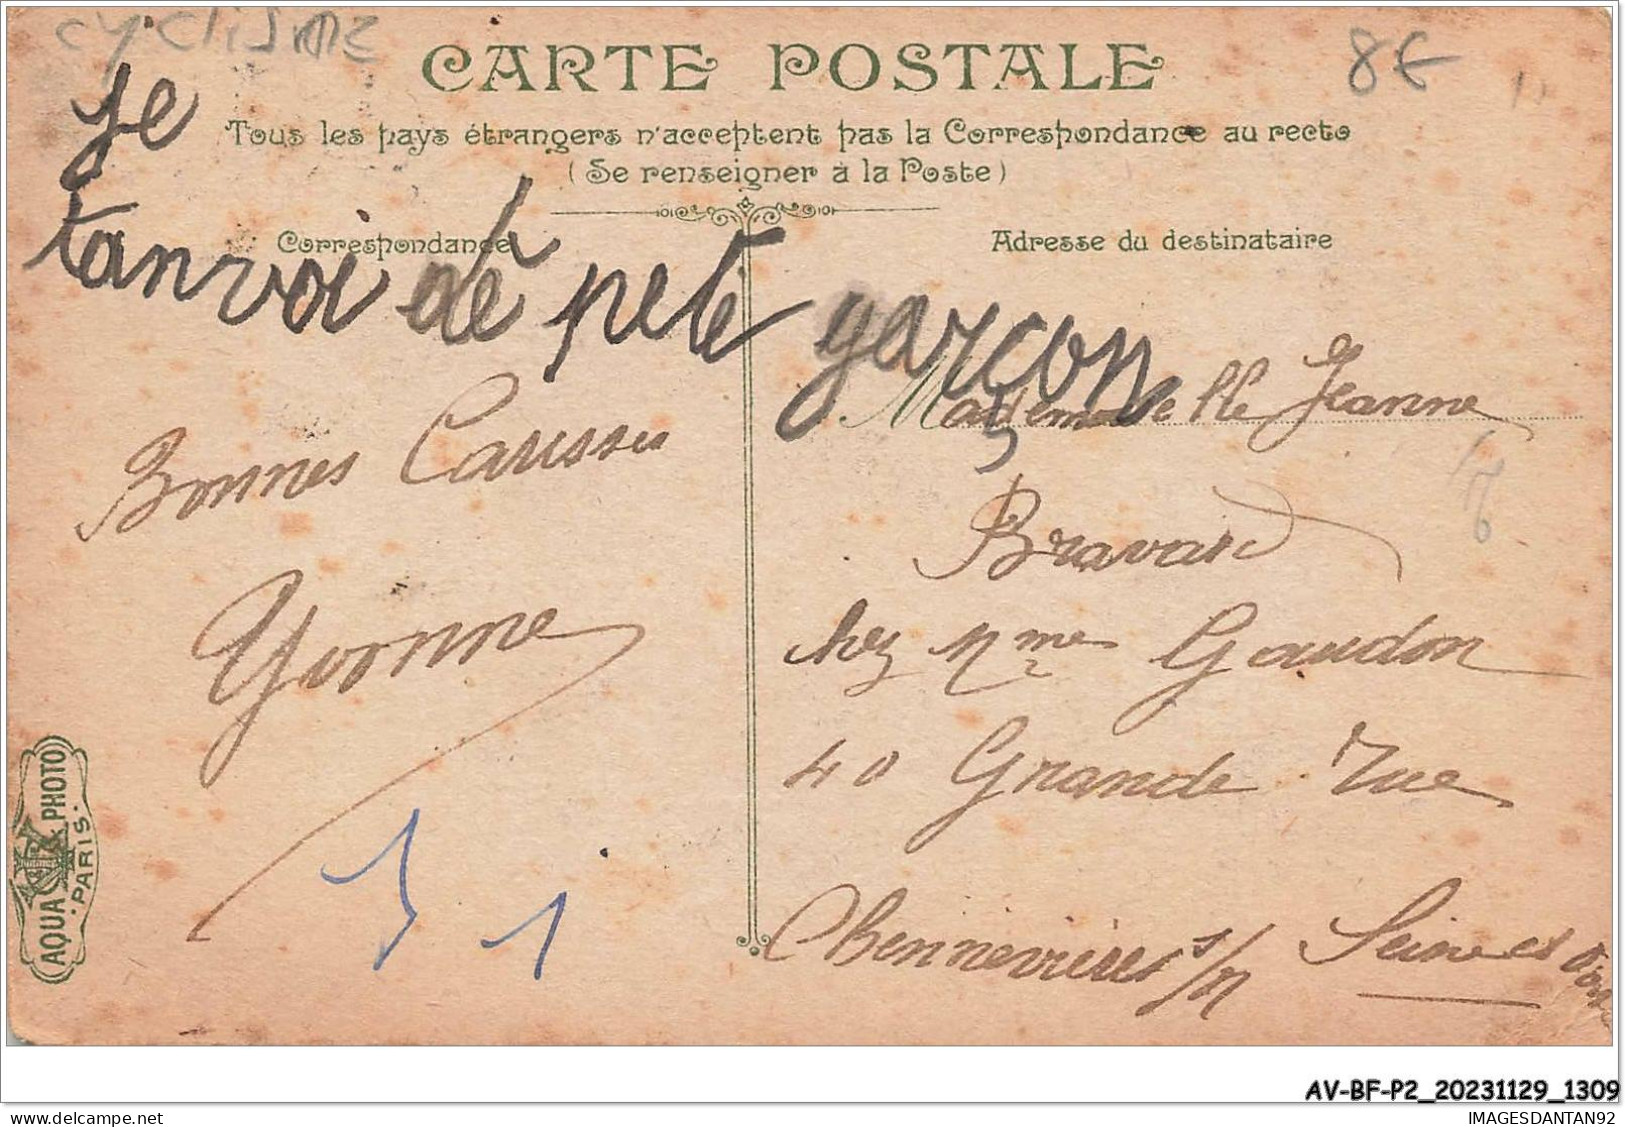 cyclisme
8€
CARTE POSTALE
Tous les pays étrangers n'acceptent pas la Correspondance au recto
(Se renseigner à la Poste)
Correspondance
Adresse du destinataire
je
tanvoi dé peti garçon
Bonnes Causses
Yvonne
Mademoiselle Jeanne
Bravard
chez Mme Gaudon
40 Grande Rue
Chennevières s/M Seine et Oise
AQUA PHOTO
PARIS
AV-BF-P2_20231129_1309
IMAGESDANTAN92